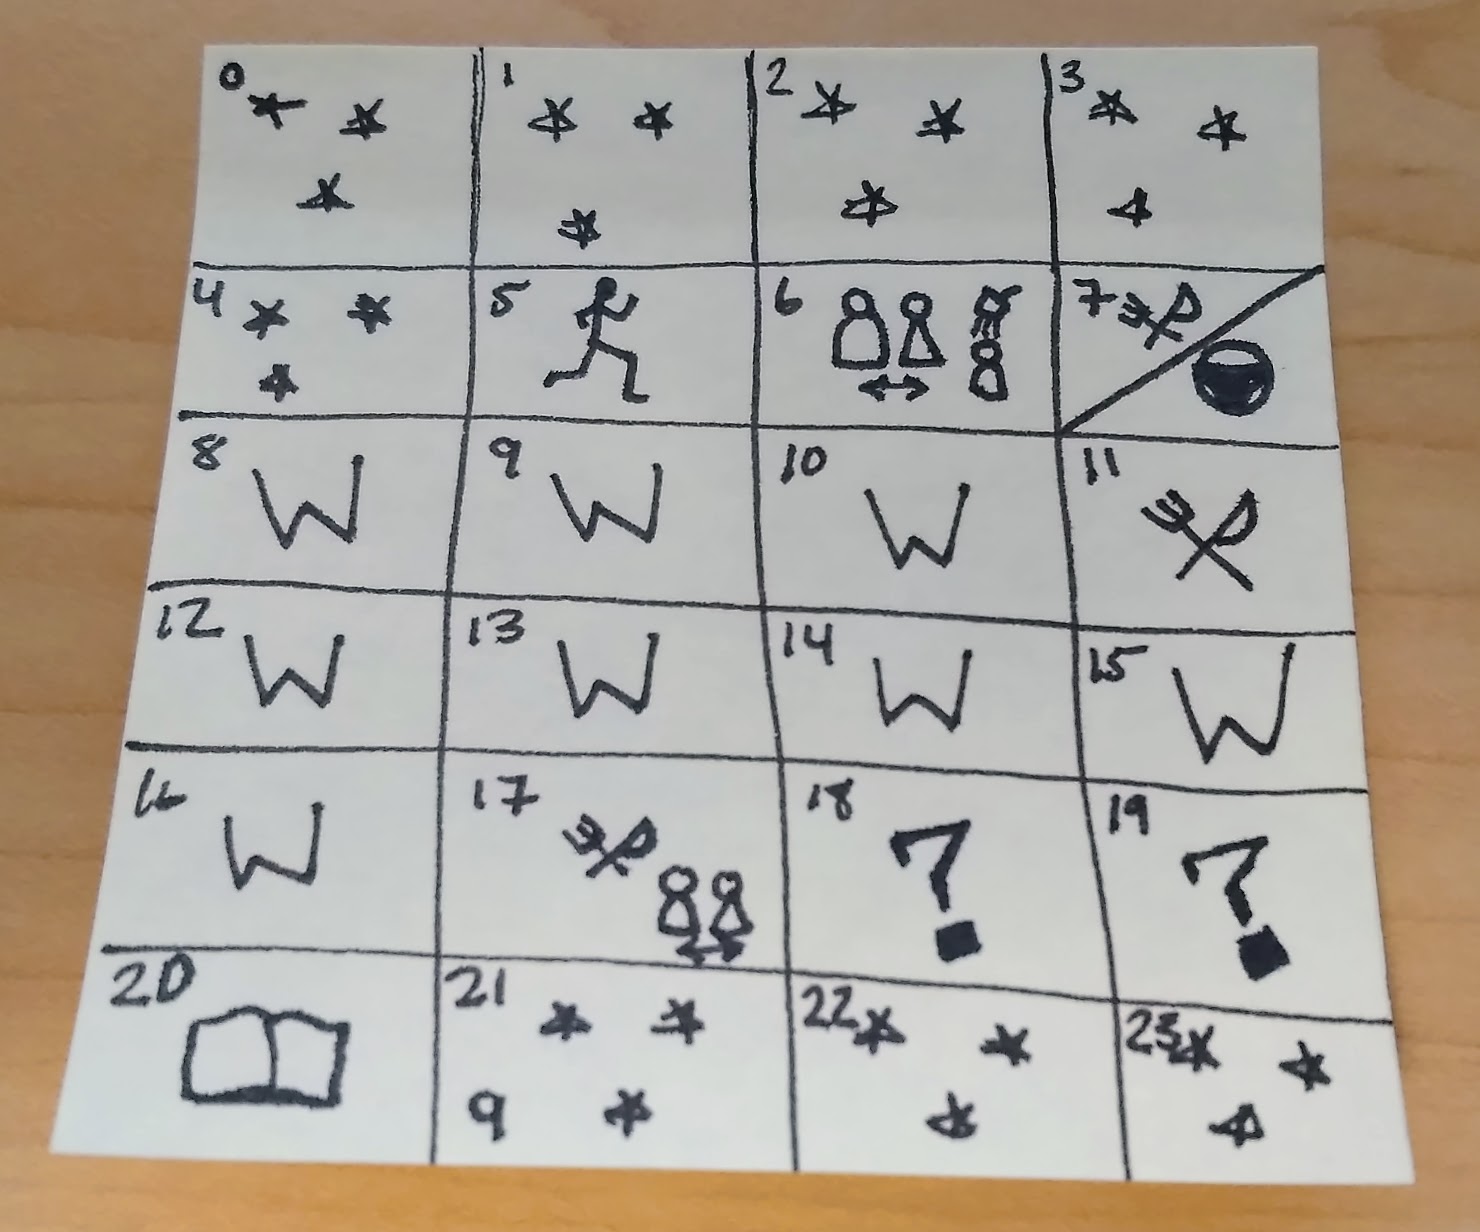 0 1 2 3
4 5 6 7
8 W 9 W 10 W 11
12 W 13 W 14 W 15 W
16 W 17 18 ? 19 ?
20 21 22 23
9